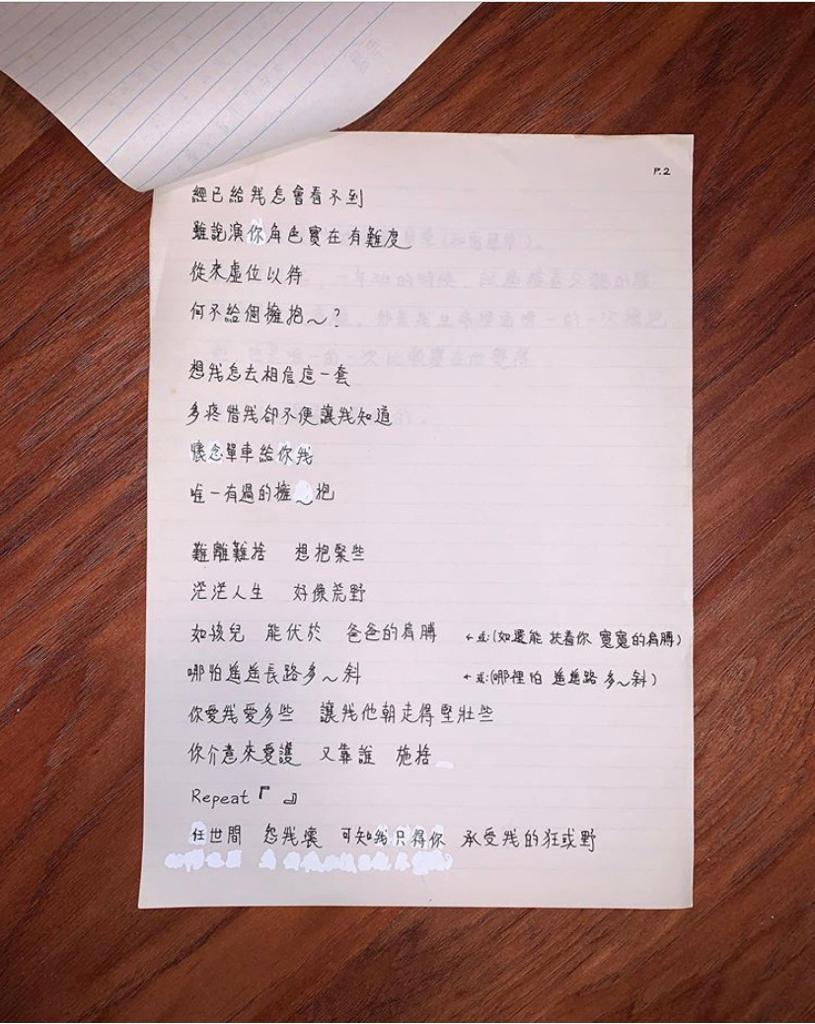 P.2
經已給我怎會看不到
雖說演你角色實在有難度
從來虛位以待
何不給個擁抱～？
想我怎去相信這一套
多疼惜我卻不便讓我知道
懷念單車給你我
唯一有過的擁～抱
難離難捨 想抱緊些
茫茫人生 好像荒野
如孩兒 能伏於 爸爸的肩膊 ←或:(如還能 扶着你 寬寬的肩膊)
哪怕遙遙長路多～斜 ←或:(哪裡怕 遙遙路 多～斜)
你愛我愛多些 讓我他朝走得堅壯些
你介意來愛護 又靠誰 施捨
Repeat『 』
任世間 怨我壞 可知我只得你 承受我的狂或野